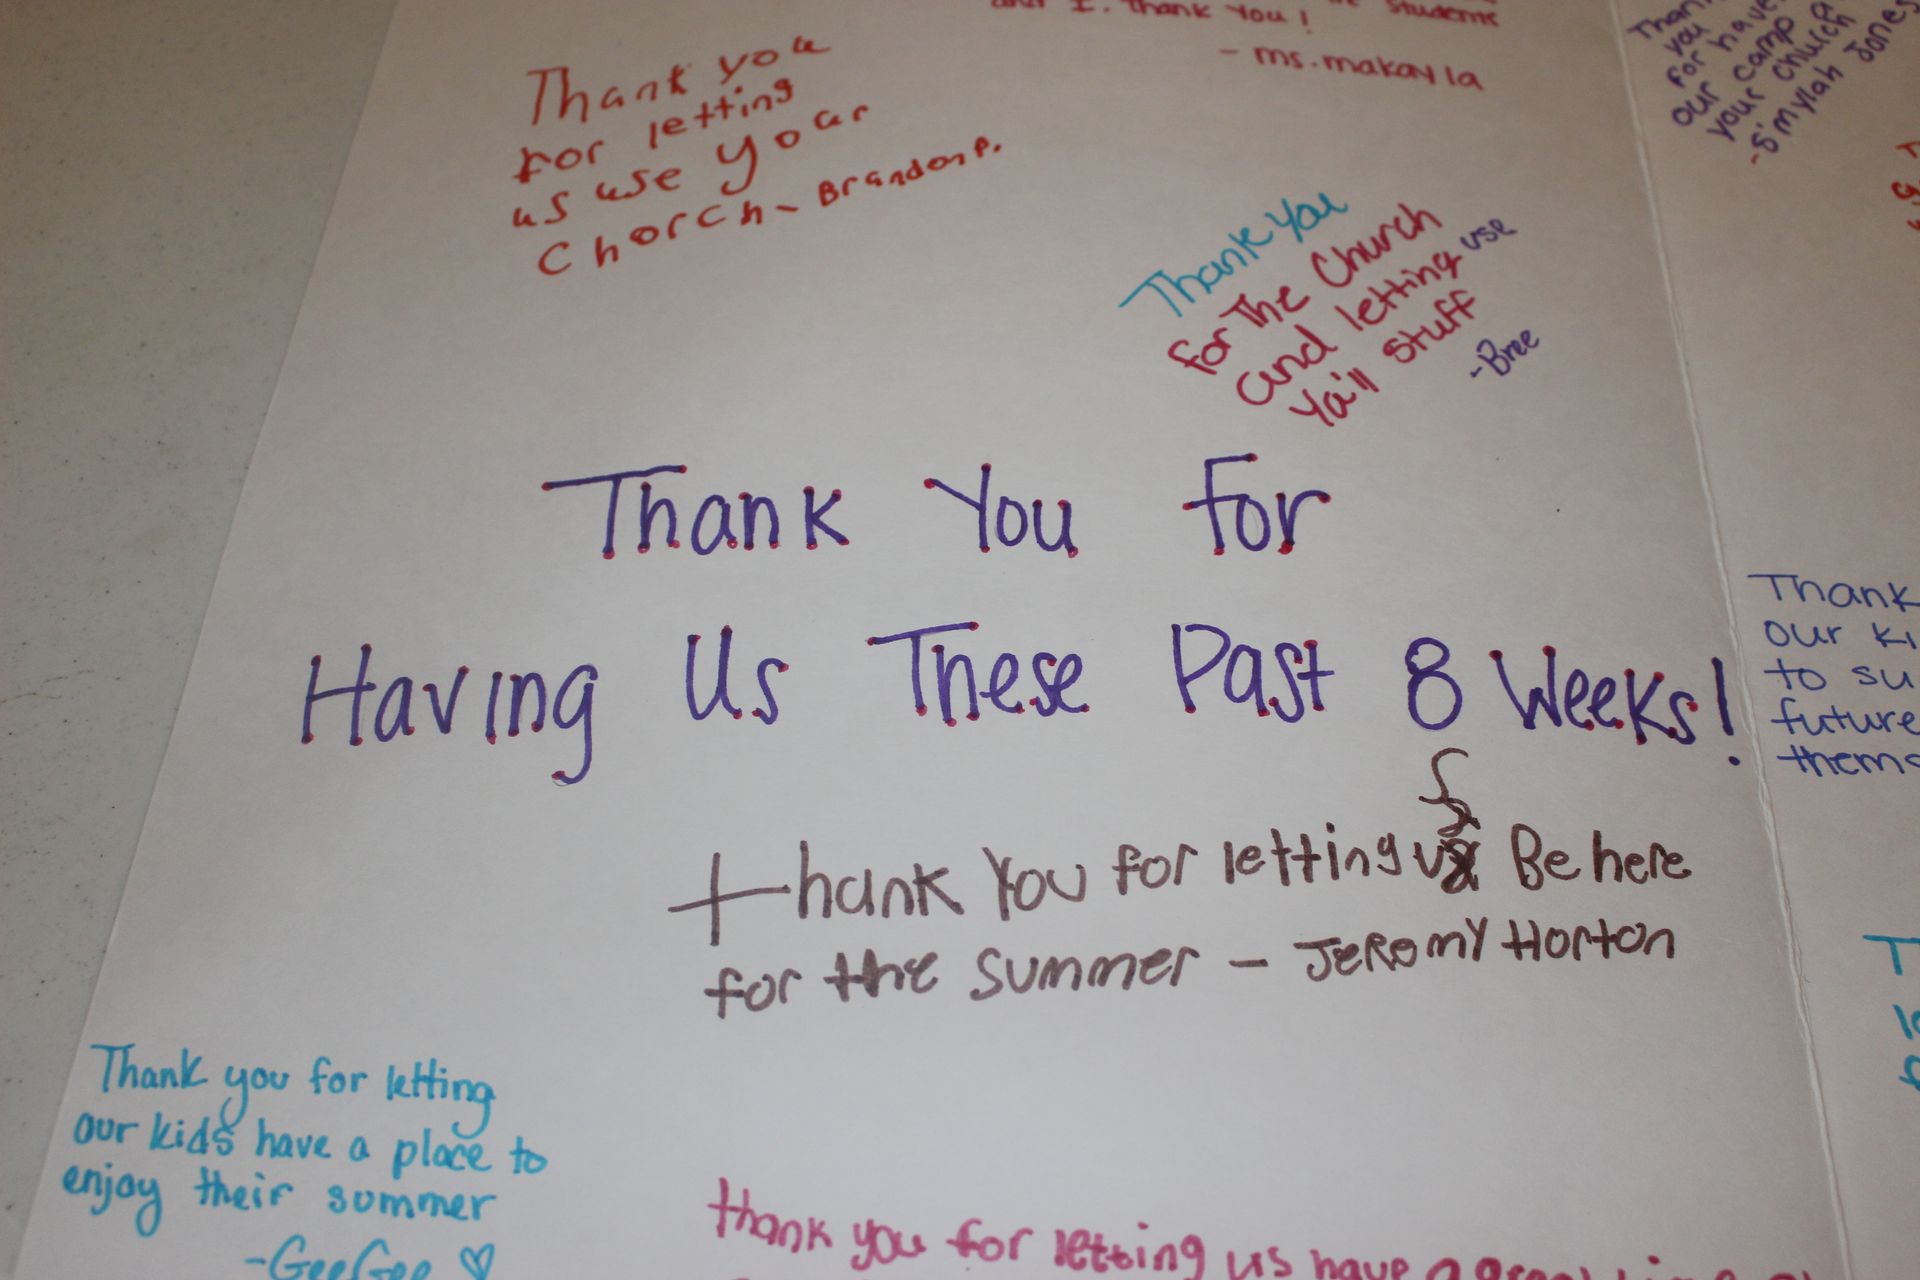 I. Thank You!
students
- ms. makayla
Thank you
for letting
us use your
Chorch - Brandon P.
Thank You
for The Church
and letting use
Ya'll stuff
- Bree
you
for have
our camp
your church
- S'mylah Jones
Thank You For
Having Us These Past 8 Weeks!
Thank
our
to
future
Thank You for letting us Be here
for the summer - JeRemy Horton
Thank you for letting
our kids have a place to
enjoy their summer
- GeeGee ♡
thank you for letting us have a